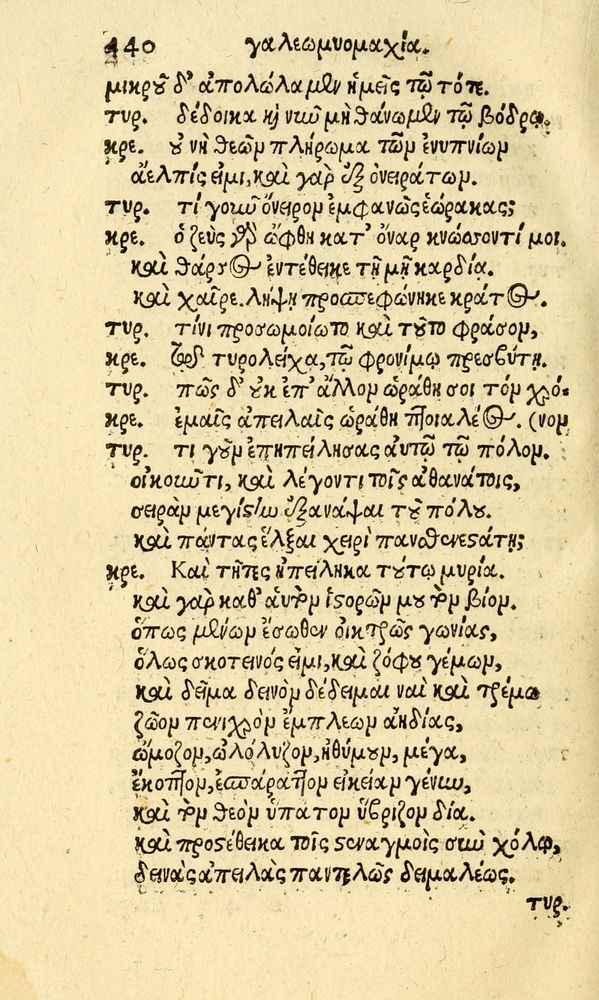 440 γαλεωμυομαχία.
μικροῦ δ' ἀπολώλαμεν ἡμεῖς τῷ τότε.
τυρ. δέδοικα καὶ νιῦ μὴ θάνωμεν τῷ βόθρῳ.
κρε. οὐ νὴ θεῶν πλήρωμα τῶν ἐνυπνίων
ἀελπίς εἰμι, καὶ γαρ ἐξ ὀνειράτων.
τυρ. τί γοιῦ ὄνειρον ἐμφανῶς ἑώρακας;
κρε. ὁ ζεὺς γὰρ ὤφθη κατ' ὄναρ κνώσσοντί μοι.
καὶ θάρσος ἐντέθεικε τῇ μῇ καρδία.
καὶ χαῖρε. λήψῃ προσπεφώνηκε κράτος.
τυρ. τίνι προσωμοίωτο καὶ τοῦτο φράσον,
κρε. τυρολείχα, τῷ φρονίμῳ πρεσβύτῃ.
τυρ. πῶς δ' οὐκ ἐπ' ἄλλον ὡράθη σοι τόν χρό-
κρε. ἐμαῖς ἀπειλαῖς ὡράθη πτοιαλέος. (νον
τυρ. τι γοῦν ἐπηπείλησας αὐτῷ τῷ πόλον.
οἰκοιῦτι, καὶ λέγοντι τοῖς ἀθανάτοις,
σειρὰν μεγίστιω ἐξανάψαι τοῦ πόλου.
καὶ πάντας ἕλξαι χειρὶ πανσθενεστάτῃ;
κρε. Καὶ τῇπες ἠπείληκα τούτῳ μυρία.
καὶ γαρ καθ' αὑτὸν ἱστορῶν μου τὸν βίον.
ὅπως μένων ἔσωθεν οἰκτρῶς γωνίας,
ὅλως σκοτεινός εἰμι, καὶ ζόφου γέμων,
καὶ δεῖμα δεινὸν δέδειμαι ναὶ καὶ τρέμω
ζῶον πενιχρὸν ἔμπλεων ἀηδίας,
ᾤμοζον, ὠλόλυζον, ἠθύμουν, μέγα,
ἐκοπτον, ἐσπάραττον εἰκείαν γένιω,
καὶ τὸν θεὸν ὑπατον ὕβριζον δία.
καὶ προστέθεικα τοῖς στεναγμοῖς σιὺ χόλῳ,
δεινὰς ἀπειλὰς παντελῶς δειμαλέως.
τυρ.